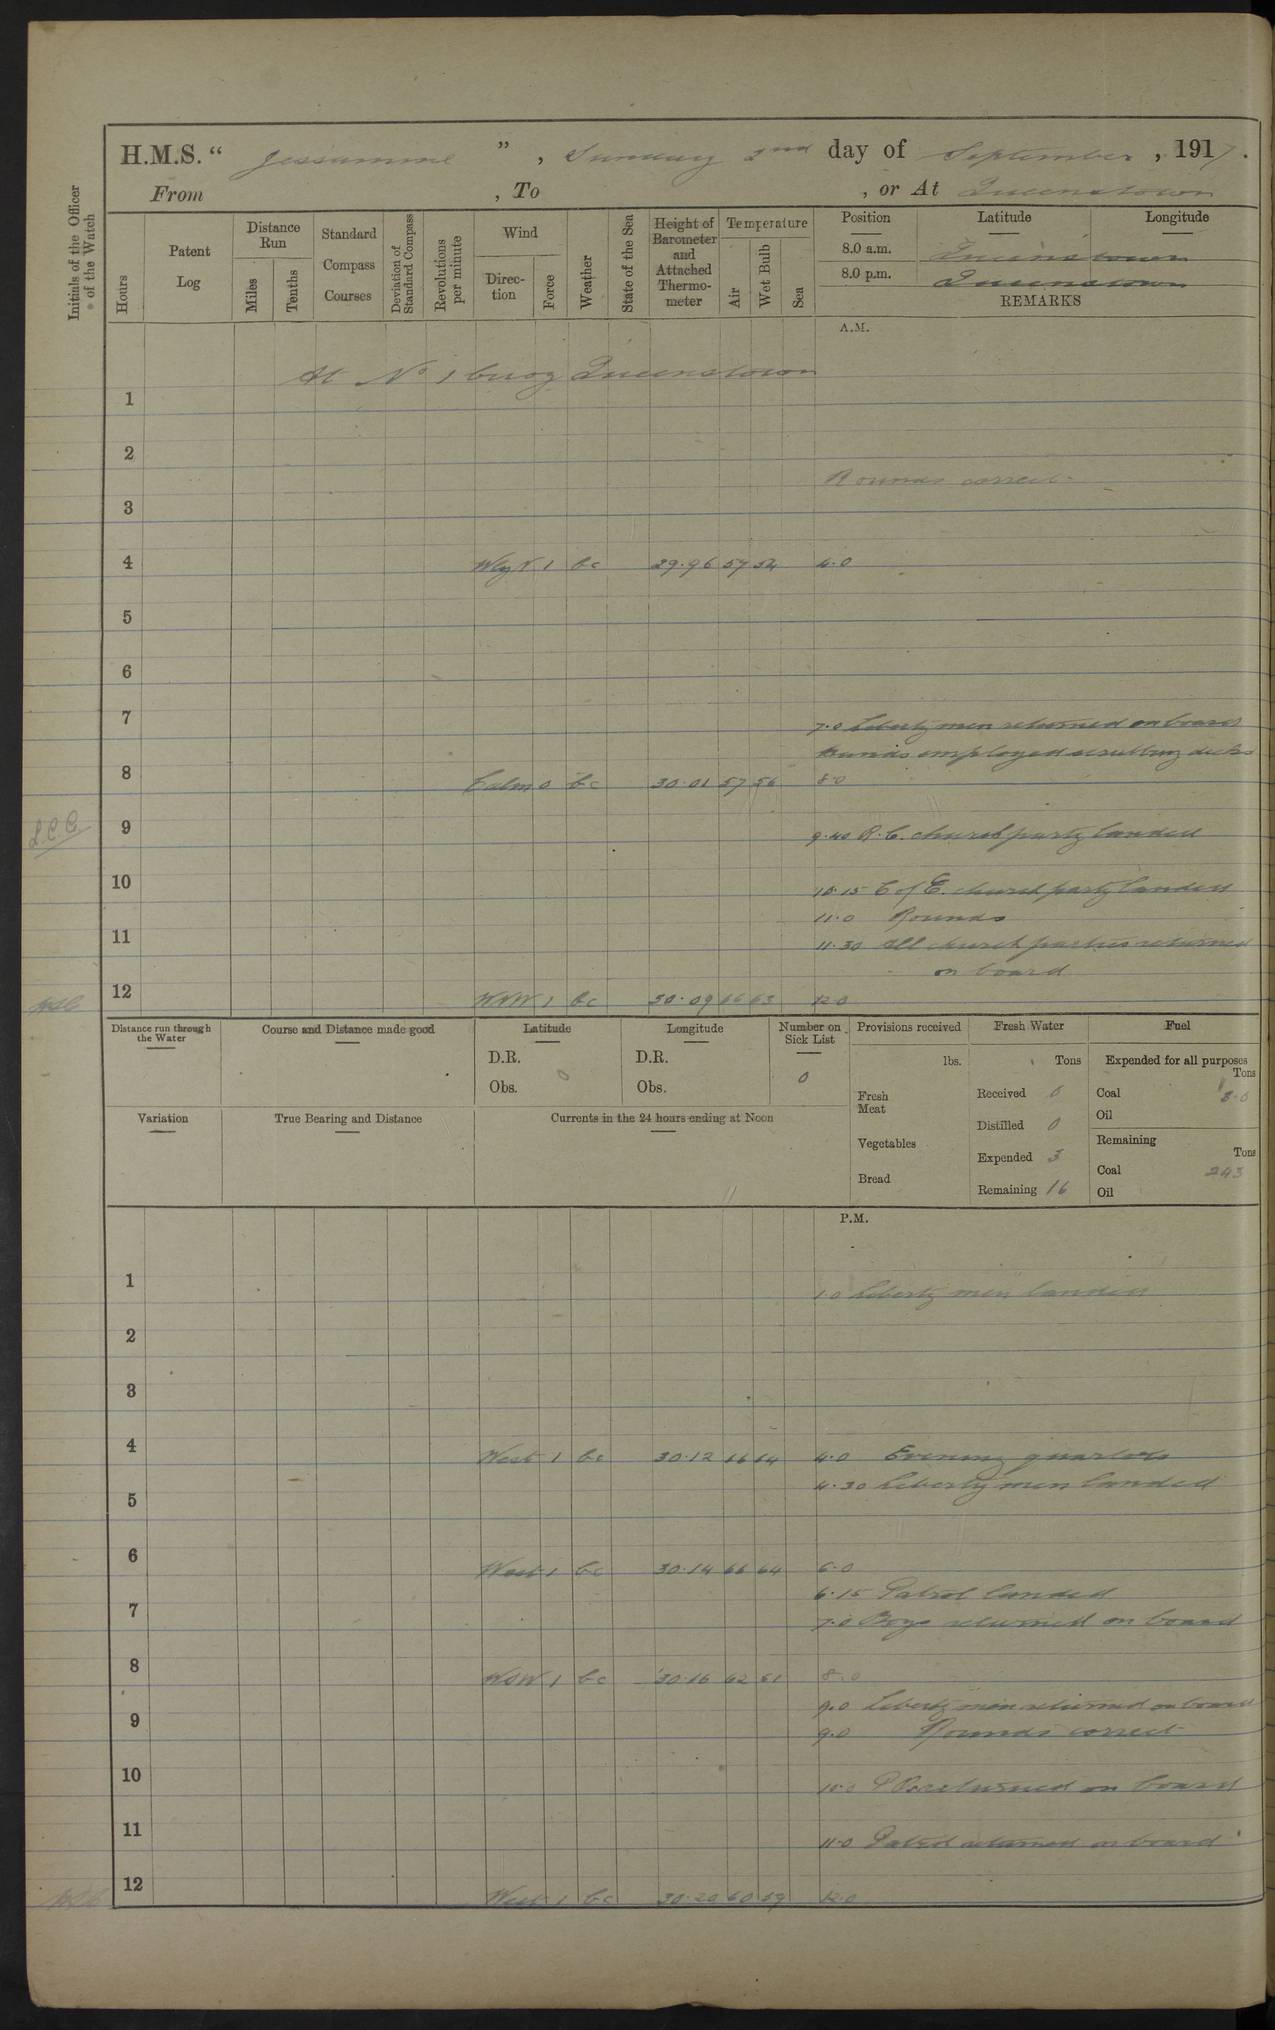 H.M.S. " Jessamine " , Sunday 2nd day of September , 1917 .
From , To , or At Queenstown
Initials of the Officer of the Watch
Hours
Patent Log
Distance Run
Miles
Tenths
Standard Compass Courses
Deviation of Standard Compass
Revolutions per minute
Wind
Direction
Force
Weather
State of the Sea
Height of Barometer and Attached Thermometer
Temperature
Air
Wet Bulb
Sea
Position Latitude Longitude
8.0 a.m. Queenstown
8.0 p.m. Queenstown
REMARKS
A.M.
At No 1 buoy Queenstown
1
2
Rounds correct.
3
4 Wly 1 bc 29.96 57 54 4.0
5
6
7 7.0 Liberty men returned on board
Hands employed scrubbing decks
8 Calm 0 bc 30.01 57 56 8.0
9 9.40 R.C. church party landed
10 10.15 C of E. church party landed
11.0 Rounds
11 11.30 All church parties returned
on board
12 WNW 1 bc 30.09 66 63 12.0
Distance run through the Water
Course and Distance made good
Latitude
D.R.
Obs.
Longitude
D.R.
Obs.
Number on Sick List
0
Provisions received
lbs.
Fresh Meat
Vegetables
Bread
Fresh Water
Tons
Received 0
Distilled 0
Expended 3
Remaining 16
Fuel
Expended for all purposes
Tons
Coal 8.0
Oil
Remaining
Tons
Coal 243
Oil
Variation
True Bearing and Distance
Currents in the 24 hours ending at Noon
P.M.
1 1.0 Liberty men landed
2
3
4 West 1 bc 30.12 66 64 4.0 Evening quarters
4.30 Liberty men landed
5
6 West 1 bc 30.14 66 64 6.0
6.15 Patrol landed
7 7.0 Boys returned on board
8 WSW 1 bc 30.16 62 61 8.0
9.0 Liberty men returned on board
9 9.0 Rounds correct
10 10.0 P.Os returned on board
11 11.0 Patrol returned on board
12 West 1 bc 30.20 60 59 12.0